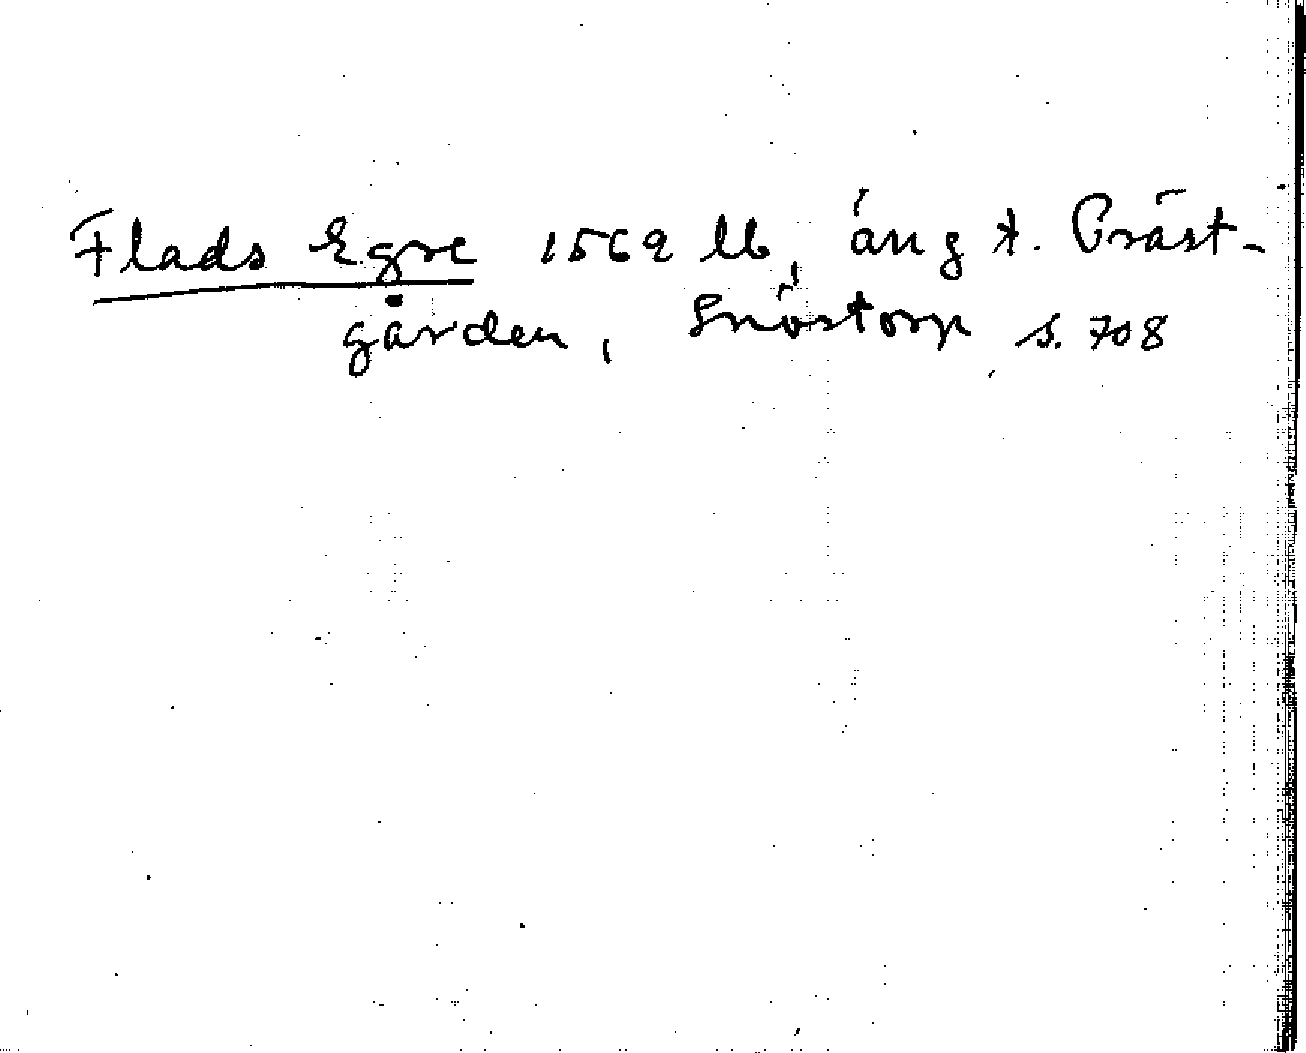 Flads Egre 1569 lb, äng t. Präst-
gården, Snöstorp s. 708